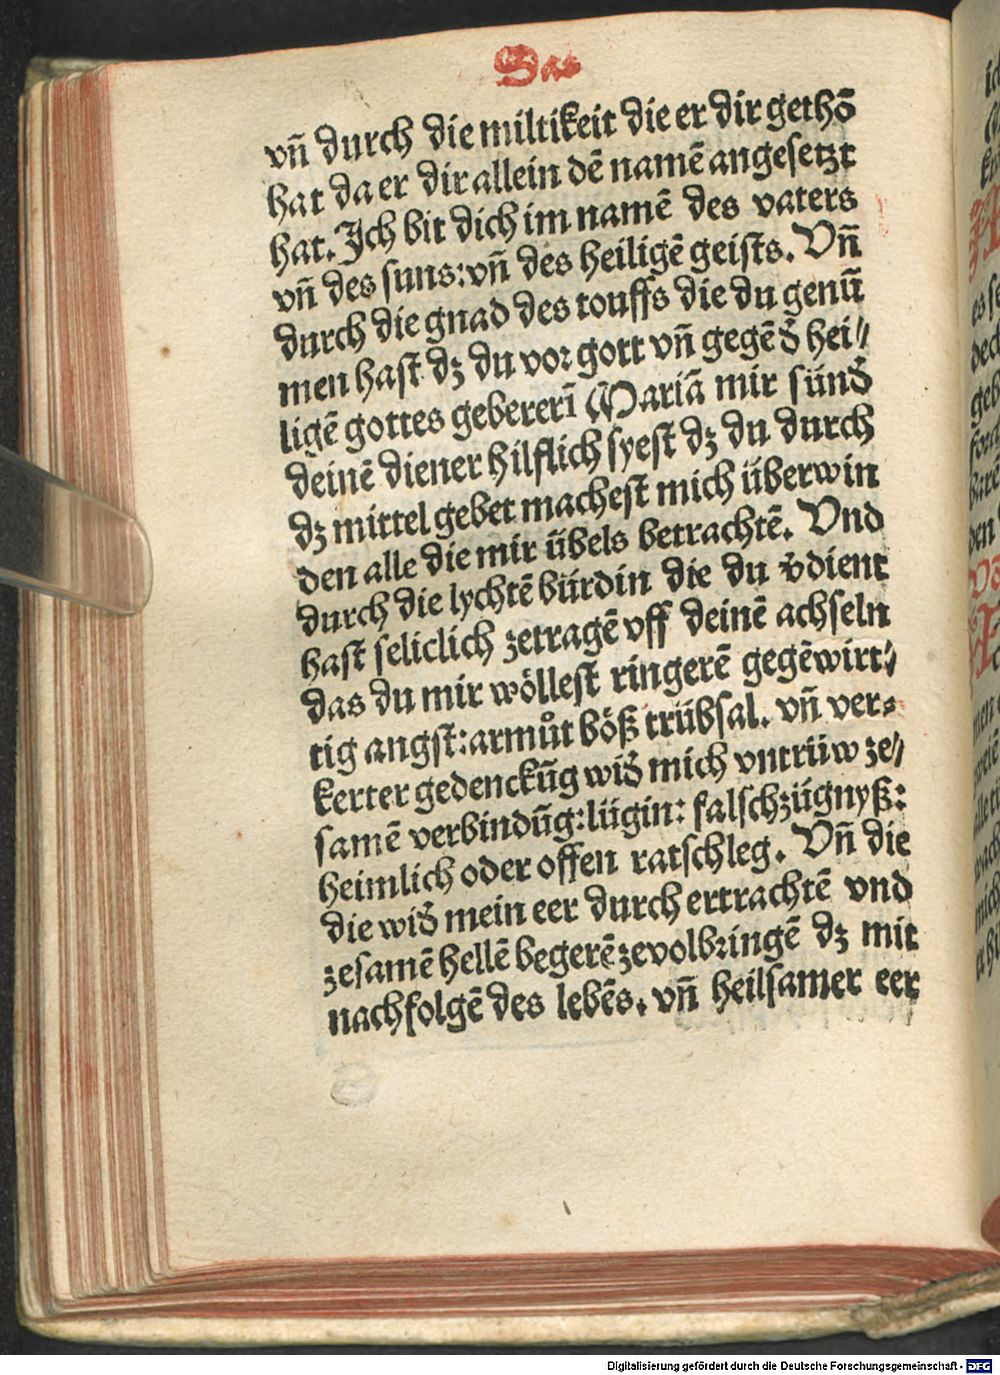 Das
vn̄ durch die miltikeit die er dir gethō
hat da er dir allein dē namē angesetzt
hat. Ich bit dich im namē des vaters
vn̄ des suns: vn̄ des heiligē geists. Vn̄
durch die gnad des touffs die du genū
men hast dz du vor gott vn̄ gegē d̄ hei⸗
ligē gottes gebererī Mariā mir sünd̄
deinē diener hilflich syest dz du durch
dz mittel gebet machest mich überwin
den alle die mir übels betrachtē. Vnd
durch die lychtē bürdin die du v̄dient
hast seliclich zetragē vff deinē achseln
das du mir wöllest ringerē gegēwirt⸗
tig angst: armůt böß trübsal. vn̄ ver⸗
kerter gedenckūg wid̄ mich vntrüw ze⸗
samē verbindūg: lügin: falschzügnyß:
heimlich oder offen ratschleg. Vn̄ die
die wid̄ mein eer durch ertrachtē vnd
zesamē hellē begerē zevolbringē dz mit
nachfolgē des lebēs. vn̄ heilsamer eer
Digitalisierung gefördert durch die Deutsche Forschungsgemeinschaft - DFG